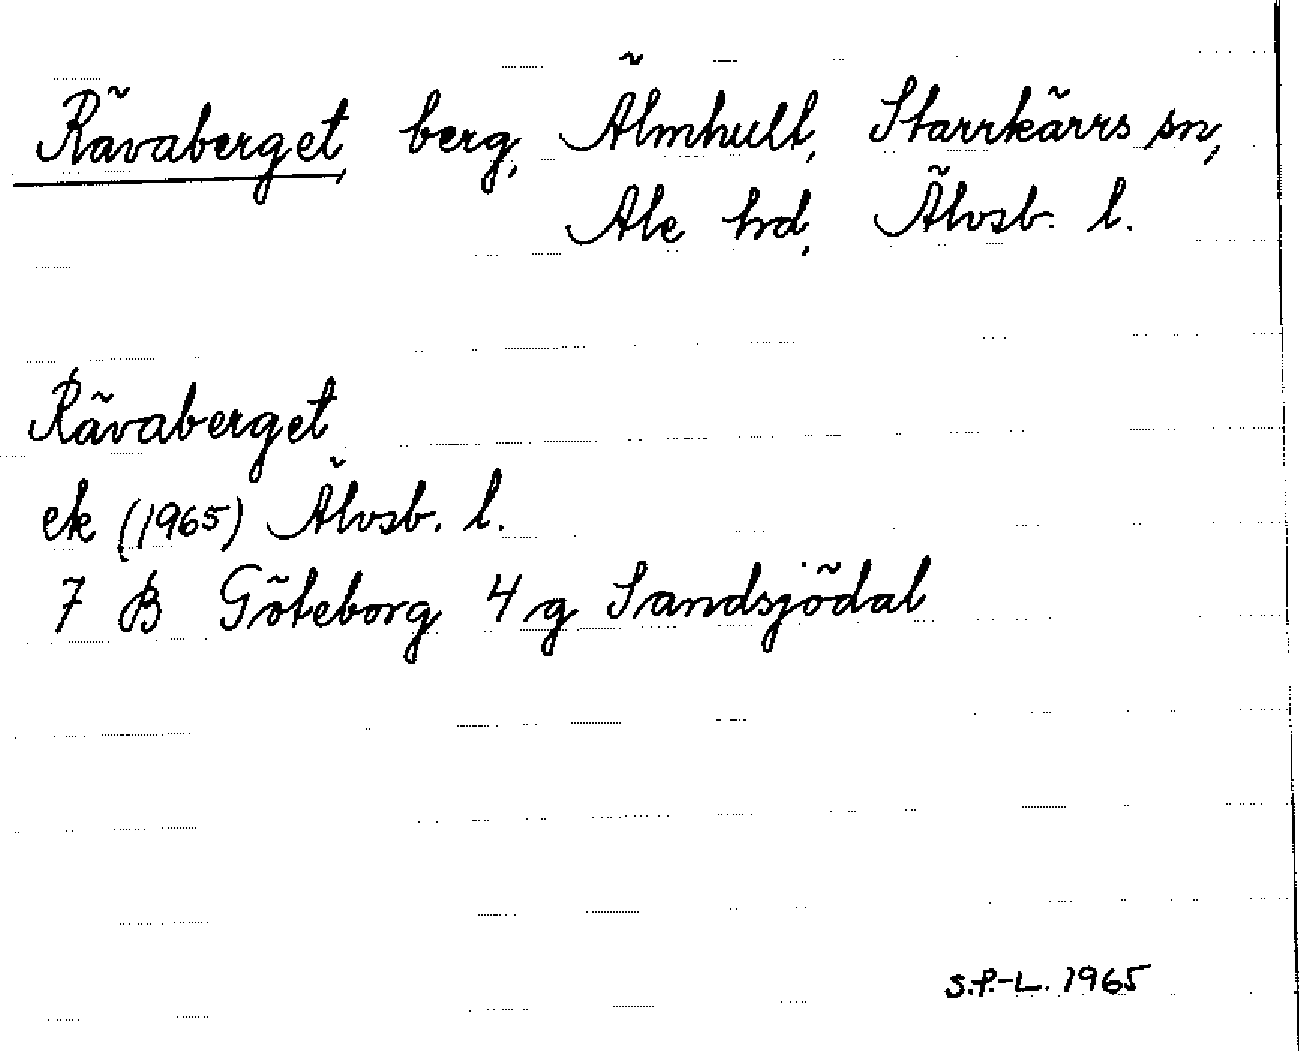 Rävaberget, berg, Älmhult, Starrkärrs sn,
Ale hrd, Älvsb. l.
Rävaberget
ek (1965) Älvsb. l.
7 B Göteborg 4 g Sandsjödal
S.P.-L. 1965